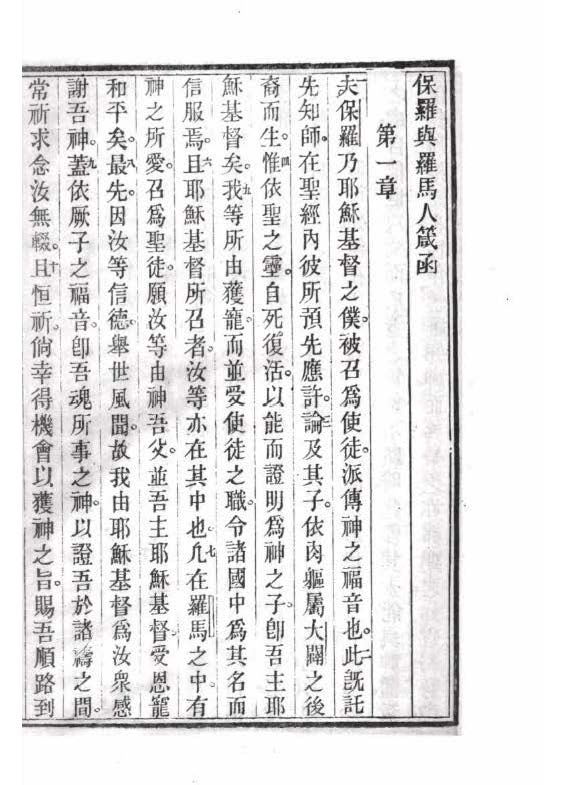 保羅與羅馬人箴函
第一章
夫保羅乃耶穌基督之僕。被召爲使徒。派傳神之福音也。二此旣託
先知師。在聖經內彼所預先應許。三論及其子。依肉軀屬大闢之後
裔而生。四惟依聖之靈。自死復活。以能而證明爲神之子。卽吾主耶
穌基督矣。五我等所由獲寵。而並受使徒之職。令諸國中爲其名而
信服焉。六且耶穌基督所召者。汝等亦在其中也。七凡在羅馬之中。有
神之所愛。召爲聖徒。願汝等由神吾父。並吾主耶穌基督。受恩寵
和平矣。八最先。因汝等信德。舉世風聞。故我由耶穌基督爲汝衆感
謝吾神。九蓋依厥子之福音。卽吾魂所事之神。以證吾於諸禱之間。
常祈求念汝無輟。十且恒祈。倘幸得機會以獲神之旨。賜吾順路到